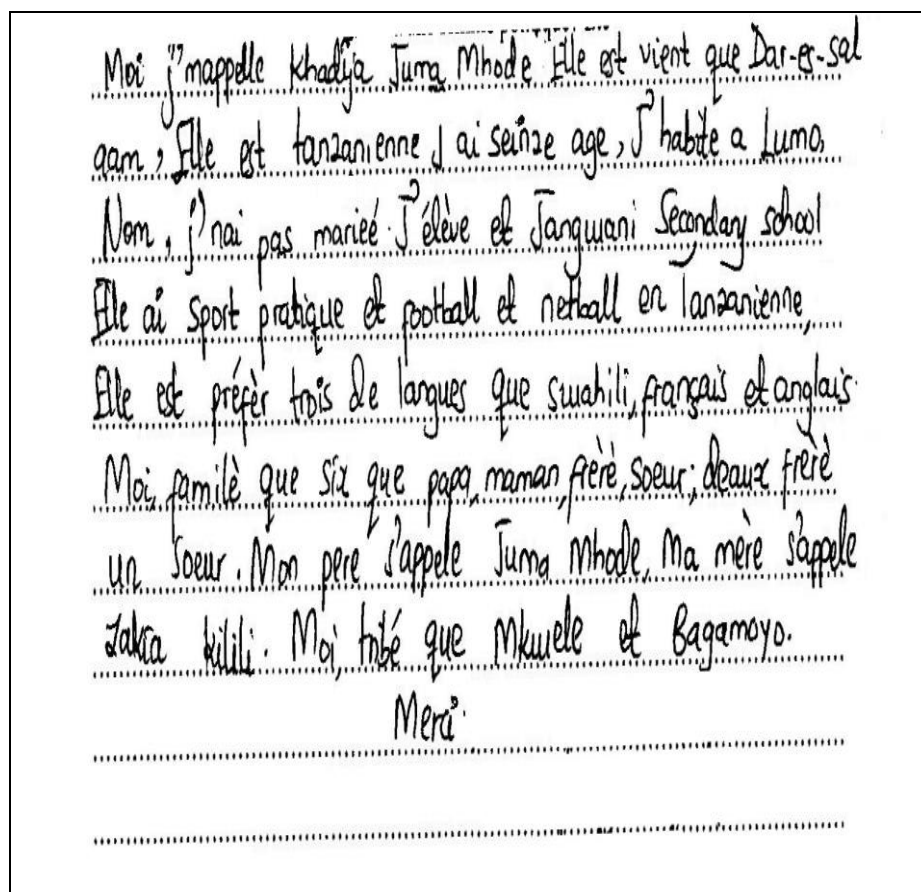 Moi j"mappelle Khadija Juma Mhode Elle est vient que Dar-es-sal
aam, Elle est tanzanienne J ai seinze age, J'habite a Lumo,
Nom, j'nai pas marieé. J'élève et Jangwani Secondary school
Elle ai sport pratique et football et netball en Tanzanienne,
Elle est préfèr trois de langues que swahili, français et anglais.
Moi, familè que six que papa, maman, frèrè, soeur; deaux frèrè
un soeur. Mon pere s'appele Juma Mhode, Ma mère s'appele
Zakia kilili. Moi, tribé que Mkwele et Bagamoyo.
Merci.